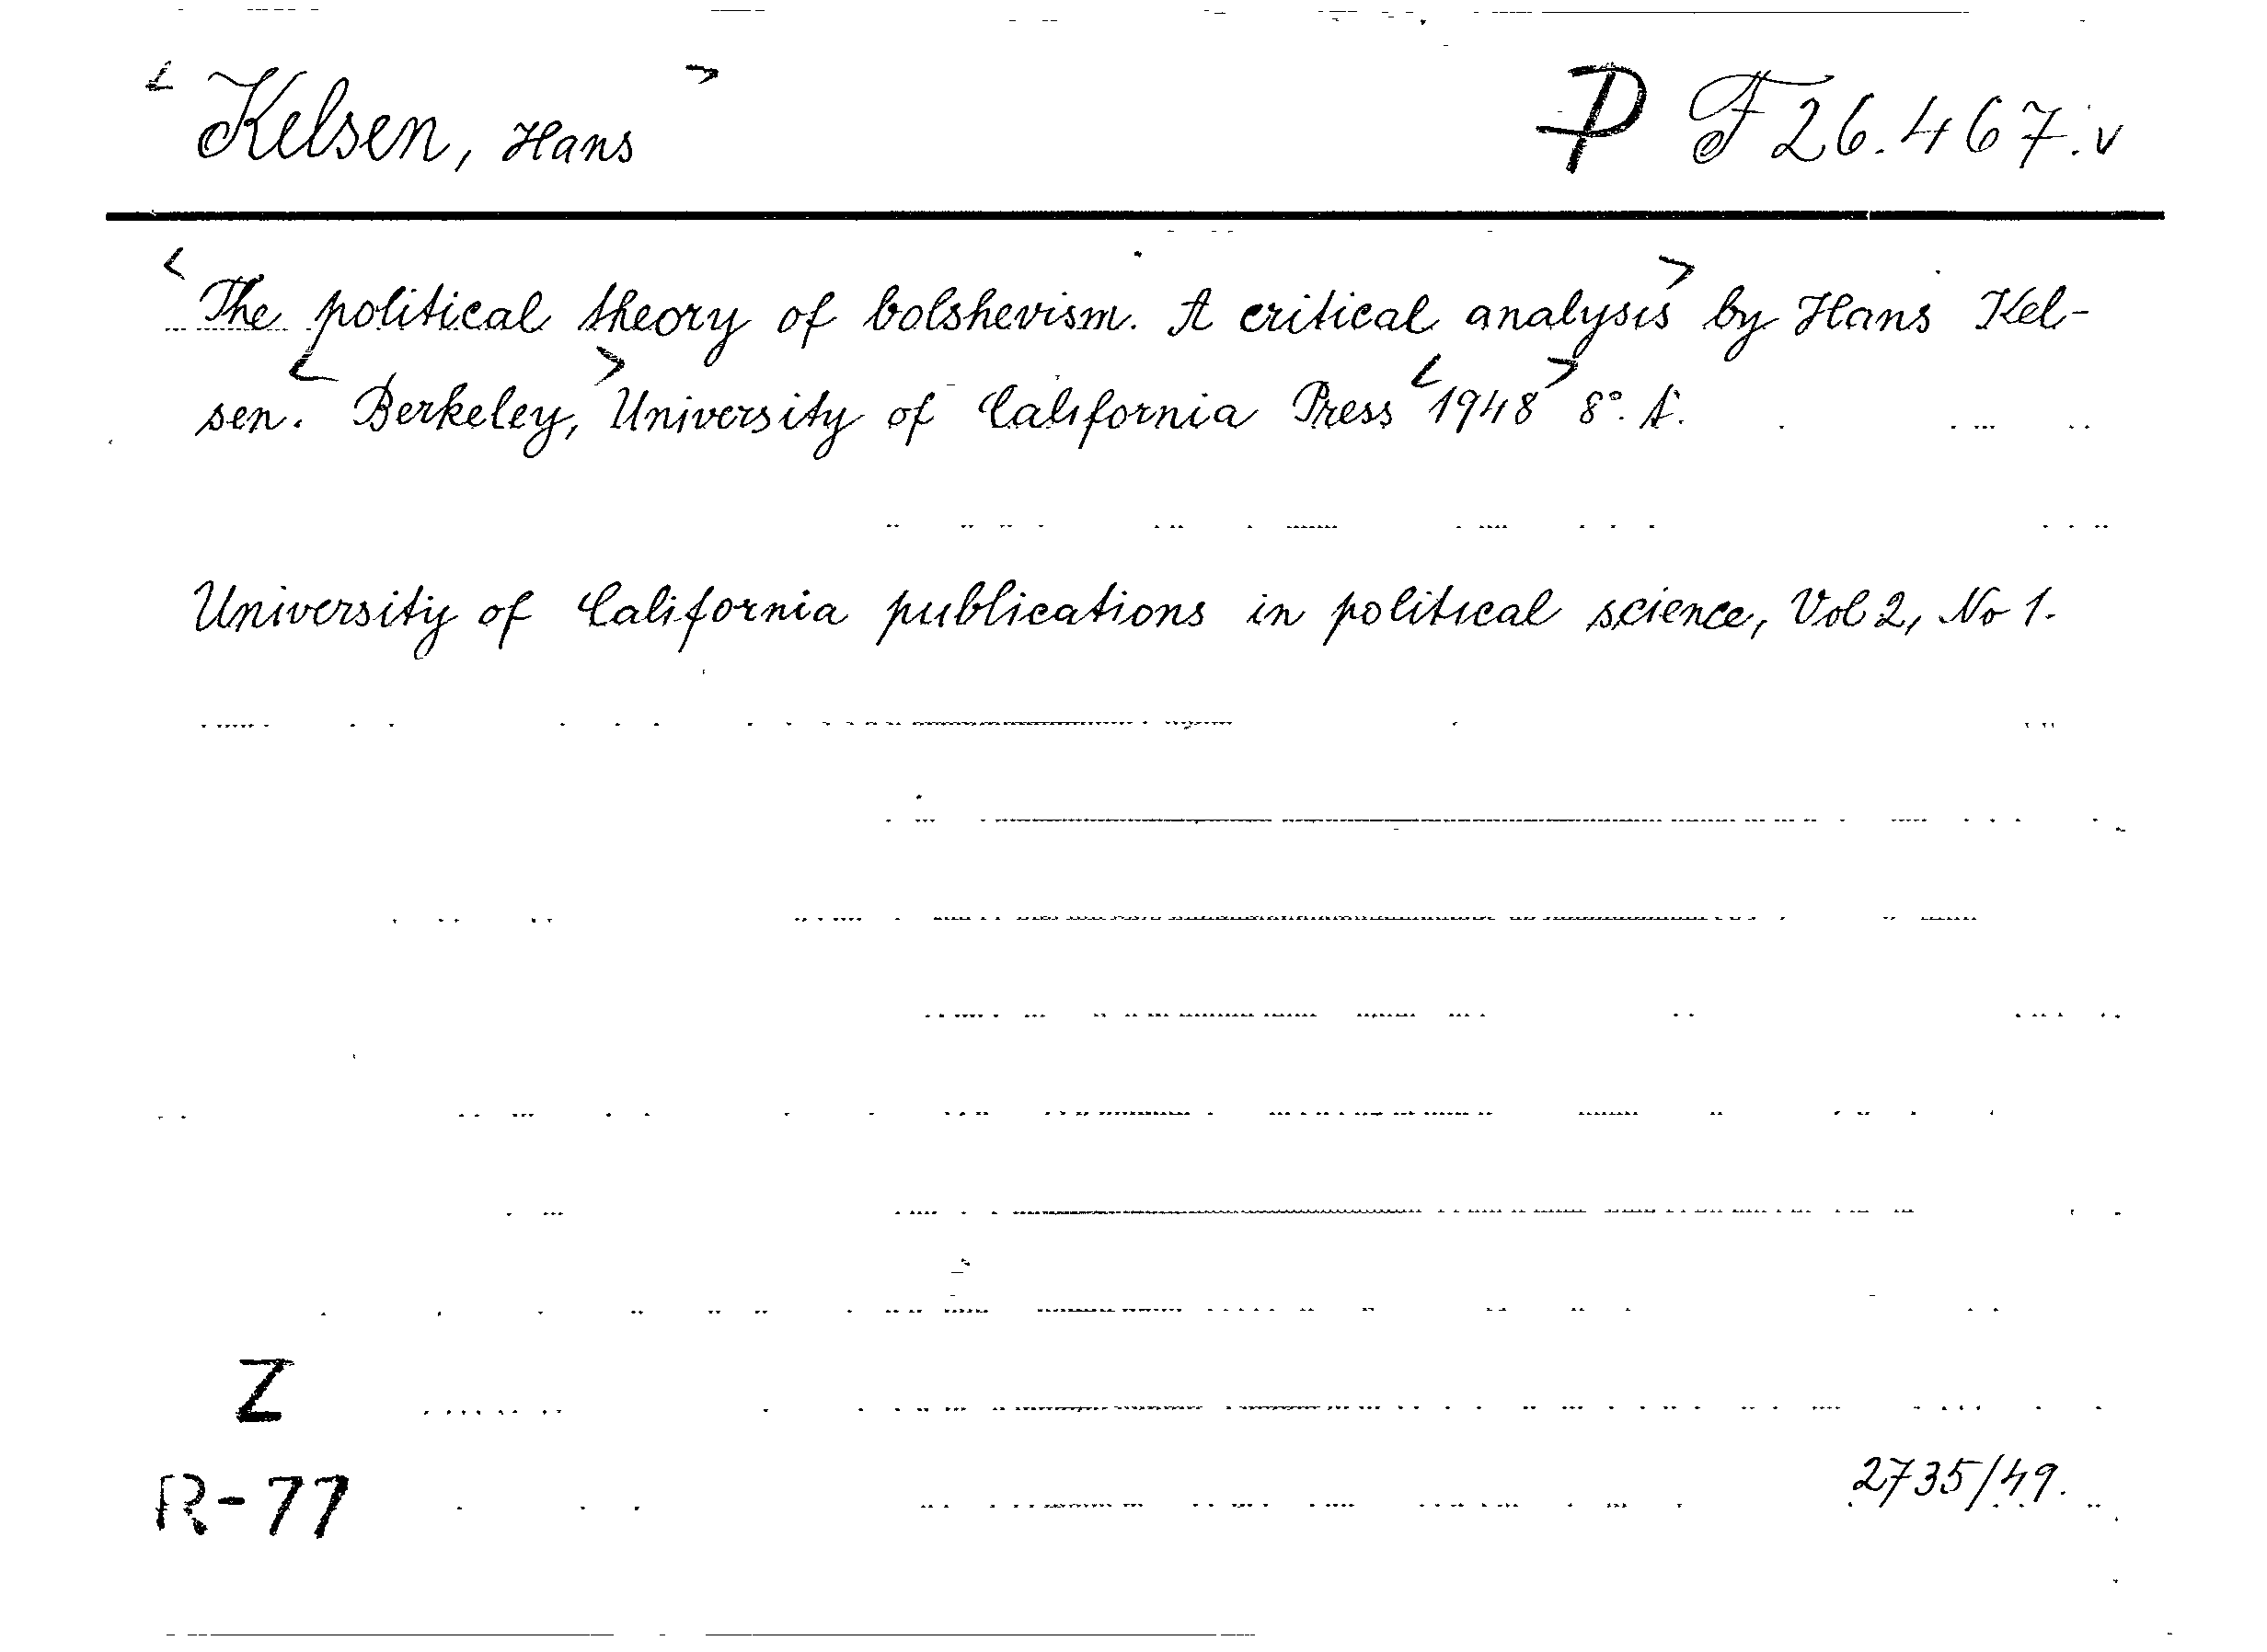 <Kelsen, Hans> P F 26.467.v
<The political theory of bolshevism. A critical analysis> by Hans Kel-
sen. <Berkeley,> University of California Press <1948> 8°.
University of California publications in political science, Vol 2, No 1.
Z
R-77 2735/49.